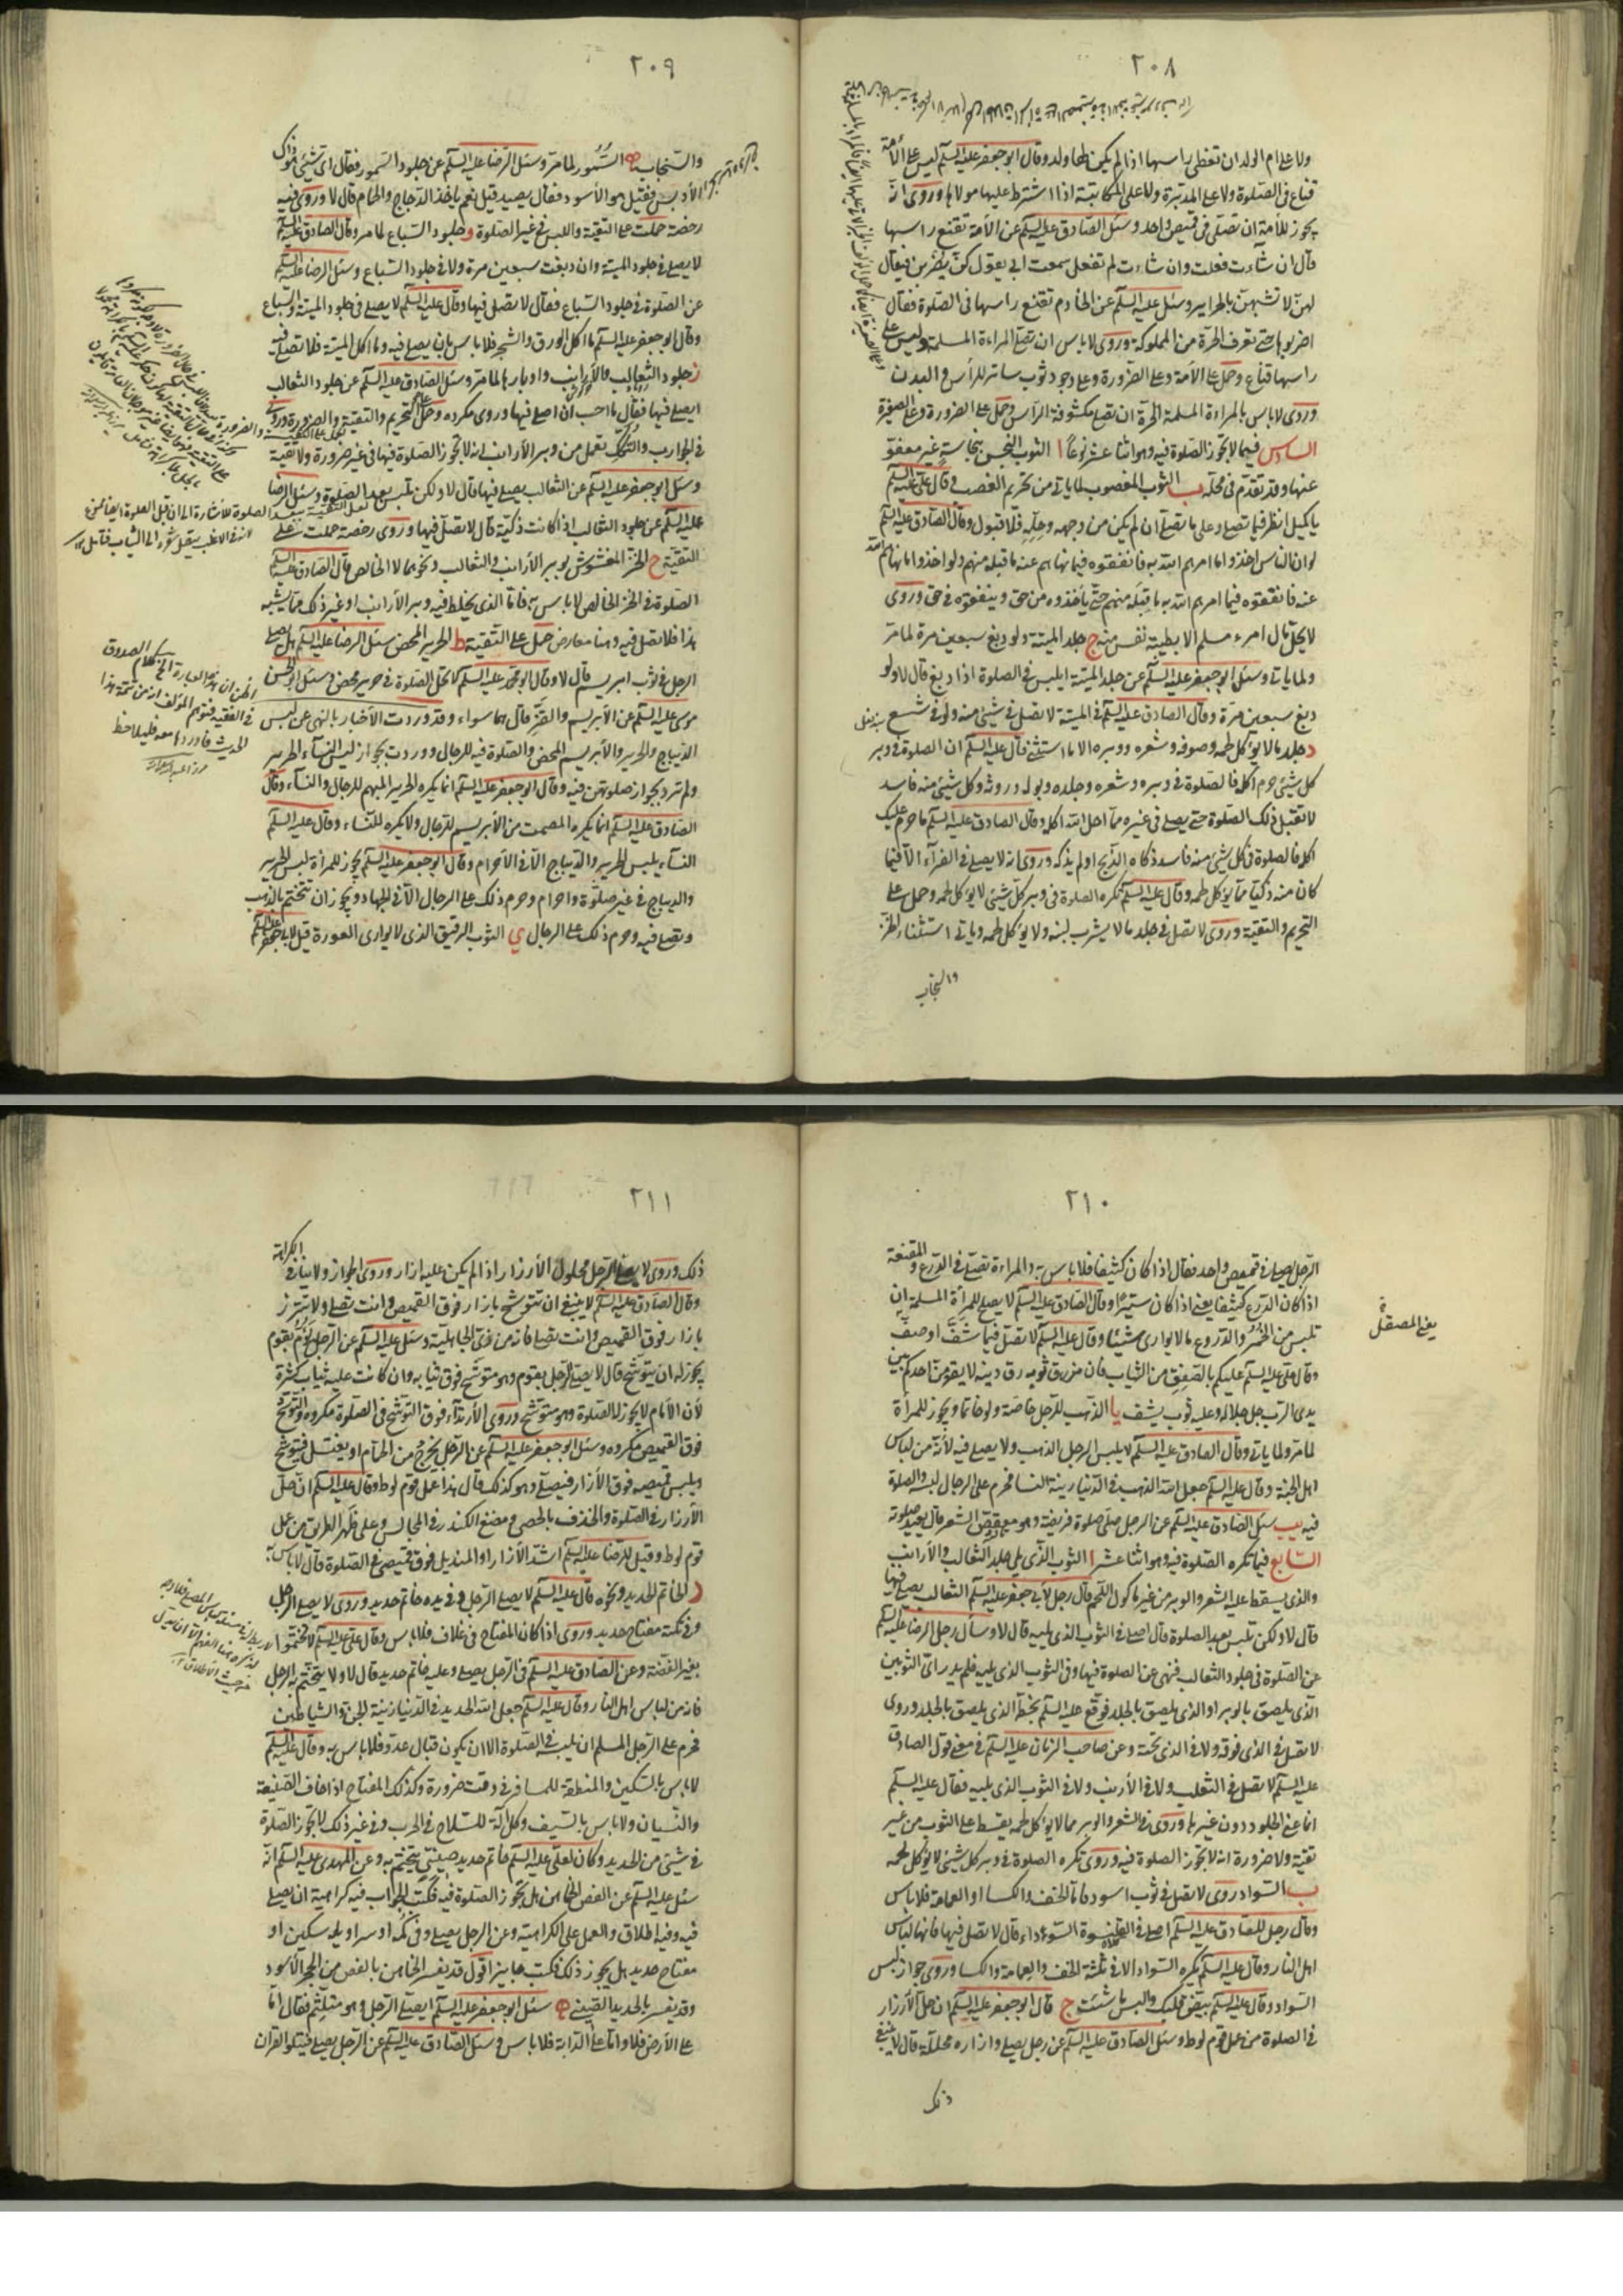 ٢٠٨
ولا على ام الولد ان تغطى راسها اذا لم يكن لها ولد وقال ابو جعفر عليه السلم ليس على الأمة
قناع فى الصلوة ولا على المدبرة ولا على المكاتبة اذا اشترط عليها مولاها وروى انه
يجوز للأمة ان تصلى فى قميص واحد وسئل الصادق عليه السلم عن الأمة تقنع راسها
قال ان شاءت فعلت وان شاءت لم تفعل سمعت ابى يقول كن يضربن فيقال
لهن لا تشبهن بالحراير وسئل عليه السلم عن الخادم تقنع راسها فى الصلوة فقال
اضربوها حتى تعرف الحرة من المملوكة وروى لا باس ان تصلى المراءة المسلمة وليس على
راسها قناع وحمل على الأمة وعلى الضرورة وعلى وجود ثوب ساتر للرأس والبدن
وروى لا باس بالمراءة المسلمة الحرة ان تصلى مكشوفة الراس وحمل على الضرورة وعلى الصغيرة
السادس فيما لا تجوز الصلوة فيه وهو اثنا عشر نوعا ا الثوب النجس بنجاسة غير معفو
عنها وقد تقدم فى محله ب الثوب المغصوب لما ياتى من تحريم الغصب وقال على عليه السلم
يا كميل انظر فيما تصلى وعلى ما تصلى ان لم يكن من وجهه وحله فلا قبول وقال الصادق عليه السلم
لو ان الناس اخذوا ما امرهم الله به فانفقوه فيما نهاهم عنه ما قبله منهم ولو اخذوا ما نهاهم الله
عنه فانفقوه فيما امرهم الله به ما قبله منهم حتى يأخذوه من حق وينفقوه فى حق وروى
لا يحل مال امرء مسلم الا بطيبة نفس منه ج جلد الميتة ولو دبغ سبعين مرة لما مر
ولما ياتى وسئل ابو جعفر عليه السلم عن جلد الميتة ايلبس فى الصلوة اذا دبغ قال لا ولو
دبغ سبعين مرة وقال الصادق عليه السلم فى الميتة لا تصل فى شيئ منه ولو فى شسع
د جلد ما لا يؤكل لحمه وصوفه وشعره ووبره الا ما استثنى قال عليه السلم ان الصلوة فى وبر
كل شيئ حرم اكله فالصلوة فى وبره وشعره وجلده وبوله وروثه وكل شيئ منه فاسد
لا تقبل تلك الصلوة حتى يصلى فى غيره مما احل الله اكله وقال الصادق عليه السلم ما حرم عليك
اكله فالصلوة فى كل شيئ منه فاسد ذكاه الذابح او لم يذكه وروى انه لا يصلى فى الفرآء الا فيما
كان منه ذكيا مما يؤكل لحمه وقال عليه السلم تكره الصلوة فى وبر كل شيئ لا يؤكل لحمه وحمل على
التحريم والتقية وروى لا تصل فى جلد ما لا يشرب لبنه ولا يؤكل لحمه وياتى استثناء الخز
والسنجاب
٢٠٩
والسنجاب ه السمور لما مر وسئل الرضا عليه السلم عن جلود السمور فقال اى شيئ هو ذاك
الأدبس فقيل هو الأسود فقال يصيد قيل نعم يأخذ الدجاج والحمام قال لا وروى فيه
رخصة حملت على التقية واللبس فى غير الصلوة و جلود السباع لما مر وقال الصادق عليه السلم
لا يصلى فى جلود الميتة وان دبغت سبعين مرة ولا فى جلود السباع وسئل الرضا عليه السلم
عن الصلوة فى جلود السباع فقال لا يصلى فيها وقال عليه السلم لا يصلى فى جلود الميتة والسباع
وقال ابو جعفر عليه السلم ما اكل الورق والشجر فلا باس بان يصلى فيه وما اكل الميتة فلا تصل فيه
ز جلود الثعالب والأرانب واوبارها لما مر وسئل الصادق عليه السلم عن جلود الثعالب
ايصلى فيها فقال ما احب ان اصلى فيها وروى مكروه وحمل على التحريم والتقية والضرورة وروى
فى الجوارب والتكك تعمل من وبر الأرانب انه لا تجوز الصلوة فيها فى غير ضرورة ولا تقية
وسئل ابو جعفر عليه السلم عن الثعالب يصلى فيها قال لا ولكن تلبس بعد الصلوة وسئل الرضا
عليه السلم عن جلود الثعالب اذا كانت ذكية قال لا تصل فيها وروى رخصة حملت على
التقية ح الخز المغشوش بوبر الأرانب والثعالب ونحوهما لا الخالص قال الصادق عليه السلم
الصلوة فى الخز الخالص لا باس به فاما الذى يخلط فيه وبر الأرانب او غير ذلك مما يشبه
هذا فلا تصل فيه وهنا معارض حمل على التقية ط الحرير المحض سئل الرضا عليه السلم هل يصلى
الرجل فى ثوب ابريسم قال لا وقال ابو محمد عليه السلم لا تحل الصلوة فى حرير محض وسئل ابو الحسن
موسى عليه السلم عن الأبريسم والقز قال هما سواء وقد وردت الأخبار بالنهى عن لبس
الديباج والحرير والأبريسم المحض والصلوة فيه للرجال ووردت بجواز لبس النسآء الحرير
ولم ترد بجواز صلوتهن فيه وقال ابو جعفر عليه السلم انما يكره الحرير المبهم للرجال والنسآء وقال
الصادق عليه السلم انما يكره المصمت من الأبريسم للرجال ولا يكره للنساء وقال عليه السلم
النسآء يلبسن الحرير والديباج الا فى الأحرام وقال ابو جعفر عليه السلم يجوز للمرأة لبس الحرير
والديباج فى غير صلوة واحرام وحرم ذلك على الرجال الا فى الجهاد ويجوز ان تتختم بالذهب
وتصلى فيه وحرم ذلك على الرجال ى الثوب الرقيق الذى لا يوارى العورة قيل لابى جعفر عليه السلم
٢١٠
الرجل يصلى فى قميص واحد فقال اذا كان كثيفا فلا باس به والمراءة تصلى فى الدرع والمقنعة
اذا كان الدرع كثيفا يعنى اذا كان ستيرا وقال الصادق عليه السلم لا يصلح للمرأة المسلمة ان
تلبس من الخمر والدروع ما لا يوارى شيئا وقال عليه السلم لا تصل فيما شف او صف
يعنى المصقل
وقال على عليه السلم عليكم بالصفيق من الثياب فان من رق ثوبه رق دينه لا يقومن احدكم بين
يدى الرب جل جلاله وعليه ثوب يشف يا الذهب للرجل خاصة ولو خاتما ويجوز للمرأة
لما مر ولما ياتى وقال الصادق عليه السلم لا يلبس الرجل الذهب ولا يصلى فيه لأنه من لباس
اهل الجنة وقال عليه السلم جعل الله الذهب فى الدنيا زينة النسا فحرم على الرجال لبسه والصلوة
فيه يب سئل الصادق عليه السلم عن الرجل صلى صلوة فريضة وهو معقوص الشعر قال يعيد صلوته
السابع فيما تكره الصلوة فيه وهو اثنا عشر ا الثوب الذى يلى جلد الثعالب والأرانب
والذى يسقط عليه الشعر والوبر من غير مأكول اللحم قال رجل لأبى جعفر عليه السلم الثعالب يصلى فيها
قال لا ولكن تلبس بعد الصلوة قال اصلى فى الثوب الذى يليه قال لا وسأل رجل الرضا عليه السلم
عن الصلوة فى جلود الثعالب فنهى عن الصلوة فيها وفى الثوب الذى يليه فلم يدر اى الثوبين
الذى يلصق بالوبر او الذى يلصق بالجلد فوقع عليه السلم بخطه الذى يلصق بالجلد وروى
لا تصل فى الذى فوقه ولا فى الذى تحته وعن صاحب الزمان عليه السلم فى معنى قول الصادق
عليه السلم لا تصل فى الثعلب ولا فى الأرنب ولا فى الثوب الذى يليه فقال عليه السلم
انما عنى الجلود دون غيرها وروى فى الشعر والوبر مما لا يؤكل لحمه يسقط على الثوب من غير
تقية ولا ضرورة انه لا تجوز الصلوة فيه وروى تكره الصلوة فى وبر كل شيئ لا يؤكل لحمه
ب السواد روى لا تصل فى ثوب اسود فاما الخف والكسا او العمامة فلا باس
وقال رجل للصادق عليه السلم اصلى فى القلنسوة السوداء قال لا تصل فيها فانها لباس
اهل النار وقال عليه السلم يكره السواد الا فى ثلثة الخف والعمامة والكسا وروى جواز لبس
السواد وقال عليه السلم بيض قلبك والبس ما شئت ج قال ابو جعفر عليه السلم ان حل الأزرار
فى الصلوة من عمل قوم لوط وسئل الصادق عليه السلم عن رجل يصلى وازراره محللة قال لا ينبغى
ذلك
٢١١
ذلك وروى لا يصلى الرجل محلول الأزرار اذا لم يكن عليه ازار وروى الجواز ولا ينافى الكراهة
وقال الصادق عليه السلم لا ينبغى ان تتوشح بازار فوق القميص وانت تصلى ولا تتزر
بازار فوق القميص وانت تصلى فانه من زى الجاهلية وسئل عليه السلم عن الرجل يؤم بقوم
يجوز له ان يتوشح قال لا يصلى الرجل بقوم وهو متوشح فوق ثيابه وان كانت عليه ثياب كثيرة
لأن الأمام لا يجوز له الصلوة وهو متوشح وروى الأرتدآء فوق التوشح فى الصلوة مكروه والتوشح
فوق القميص مكروه وسئل ابو جعفر عليه السلم عن الرجل يخرج من الحمام او يغتسل فيتوشح
ويلبس قميصه فوق الأزار فيصلى وهو كذلك قال هذا عمل قوم لوط وقال عليه السلم ان حل
الأزرار فى الصلوة والخذف بالحصى ومضغ الكندر فى المجالس وعلى ظهر الطريق من عمل
قوم لوط وقيل للرضا عليه السلم اشد الأزار او المنديل فوق قميصى فى الصلوة قال لا باس به
د الخاتم الحديد ونحوه قال عليه السلم لا يصلى الرجل وفى يده خاتم حديد وروى لا يصلى الرجل
وفى تكته مفتاح حديد وروى اذا كان المفتاح فى غلاف فلا باس وقال على عليه السلم لا تختموا
بغير الفضة وعن الصادق عليه السلم فى الرجل يصلى وعليه خاتم حديد قال لا ولا يتختم به الرجل
فانه من لباس اهل النار وقال عليه السلم جعل الله الحديد فى الدنيا زينة الجن والشياطين
فحرم على الرجل المسلم ان يلبسه فى الصلوة الا ان يكون قبال عدو فلا باس به وقال عليه السلم
لا باس بالسكين والمنطقة للمسافر فى وقت ضرورة وكذلك المفتاح اذا خاف الضيعة
والنسيان ولا باس بالسيف وكل آلة للسلاح فى الحرب وفى غير ذلك لا تجوز الصلوة
فى شيئ من الحديد وكان لعلى عليه السلم خاتم حديد صينى يتختم به وعن المهدى عليه السلم انه
سئل عليه السلم عن الفص الخماهن هل تجوز الصلوة فيه فكتب الجواب فيه كراهية ان يصلى
فيه وفيه اطلاق والعمل على الكراهية وعن الرجل يصلى وفى كمه او سراويله سكين او
مفتاح حديد هل يجوز ذلك فكتب جايز اقول قد يفسر الخماهن بالفص من الحجر الأسود
وقد يفسر بالحديد الصينى ه سئل ابو جعفر عليه السلم ايصلى الرجل وهو متلثم فقال اما
على الأرض فلا واما على الدابة فلا باس وسئل الصادق عليه السلم عن الرجل يصلى فيتلو القران